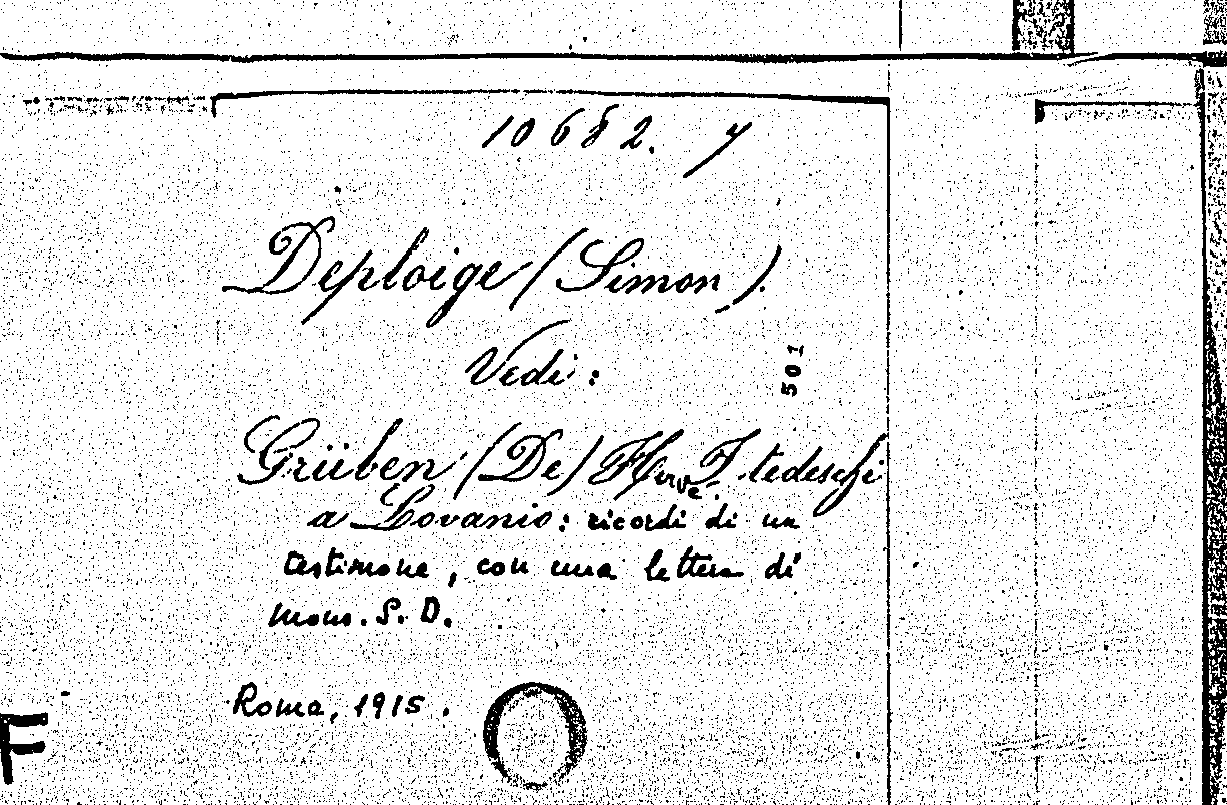 10682. 7
Deploige (Simon).
Vedi:
501
Grüben (De) Hervé. I tedeschi
a Lovanio: ricordi di un
testimone, con una lettera di
mons. S. D.
Roma, 1915.
F